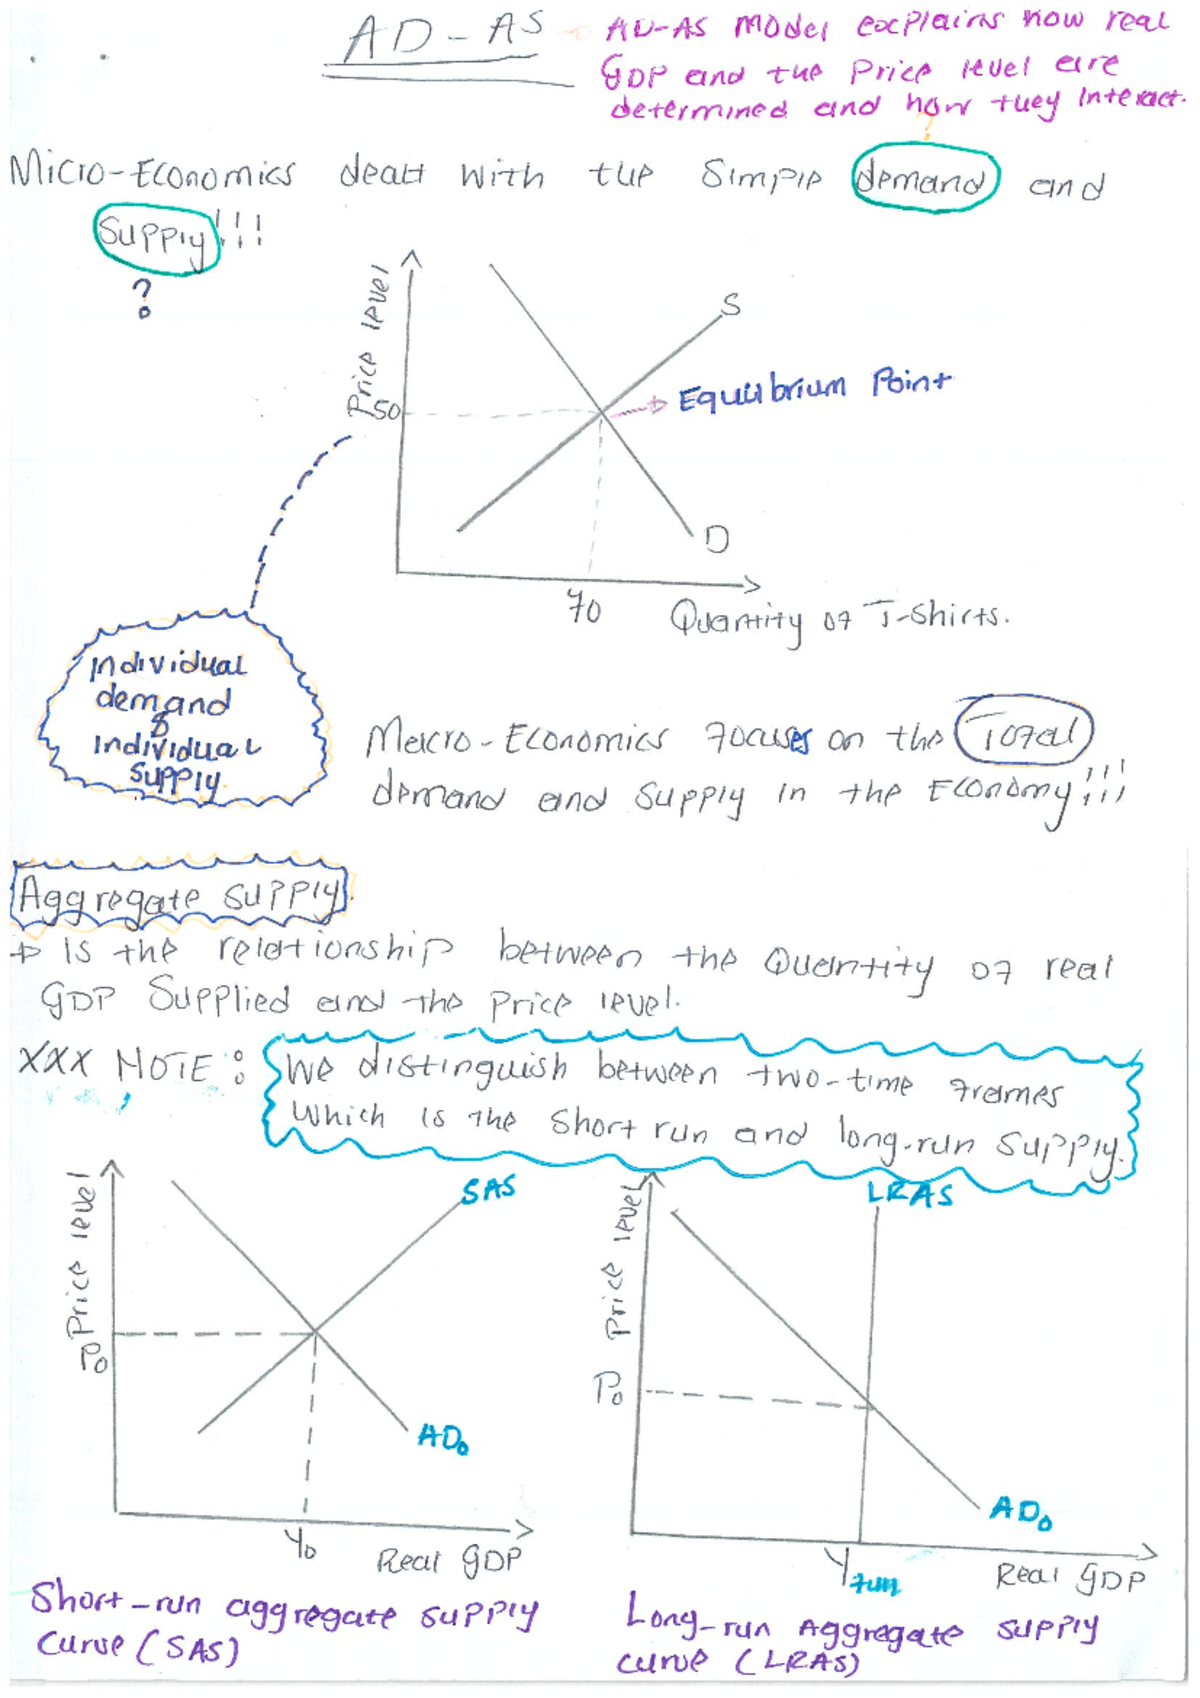 AD-AS → AD-AS Model explains how real
GDP and the Price level are
determined and how they Interact.
Micro-Economics dealt with the simple demand and
Supply!!!
?
Price level
S
50
→ Equilibrium Point
D
70
Quantity of T-shirts.
Individual
demand
&
Individual
supply.
Macro-Economics focuses on the Total
demand and supply in the Economy!!!
Aggregate supply.
→ Is the relationship between the Quantity of real
GDP Supplied and the Price level.
XXX NOTE: We distinguish between two-time frames
Which is the short run and long-run supply.
Price level
SAS
P0
AD0
Y0
Real GDP
Short-run aggregate supply
curve (SAS)
Price level
LRAS
P0
AD0
Yfull
Real GDP
Long-run Aggregate supply
curve (LRAS)